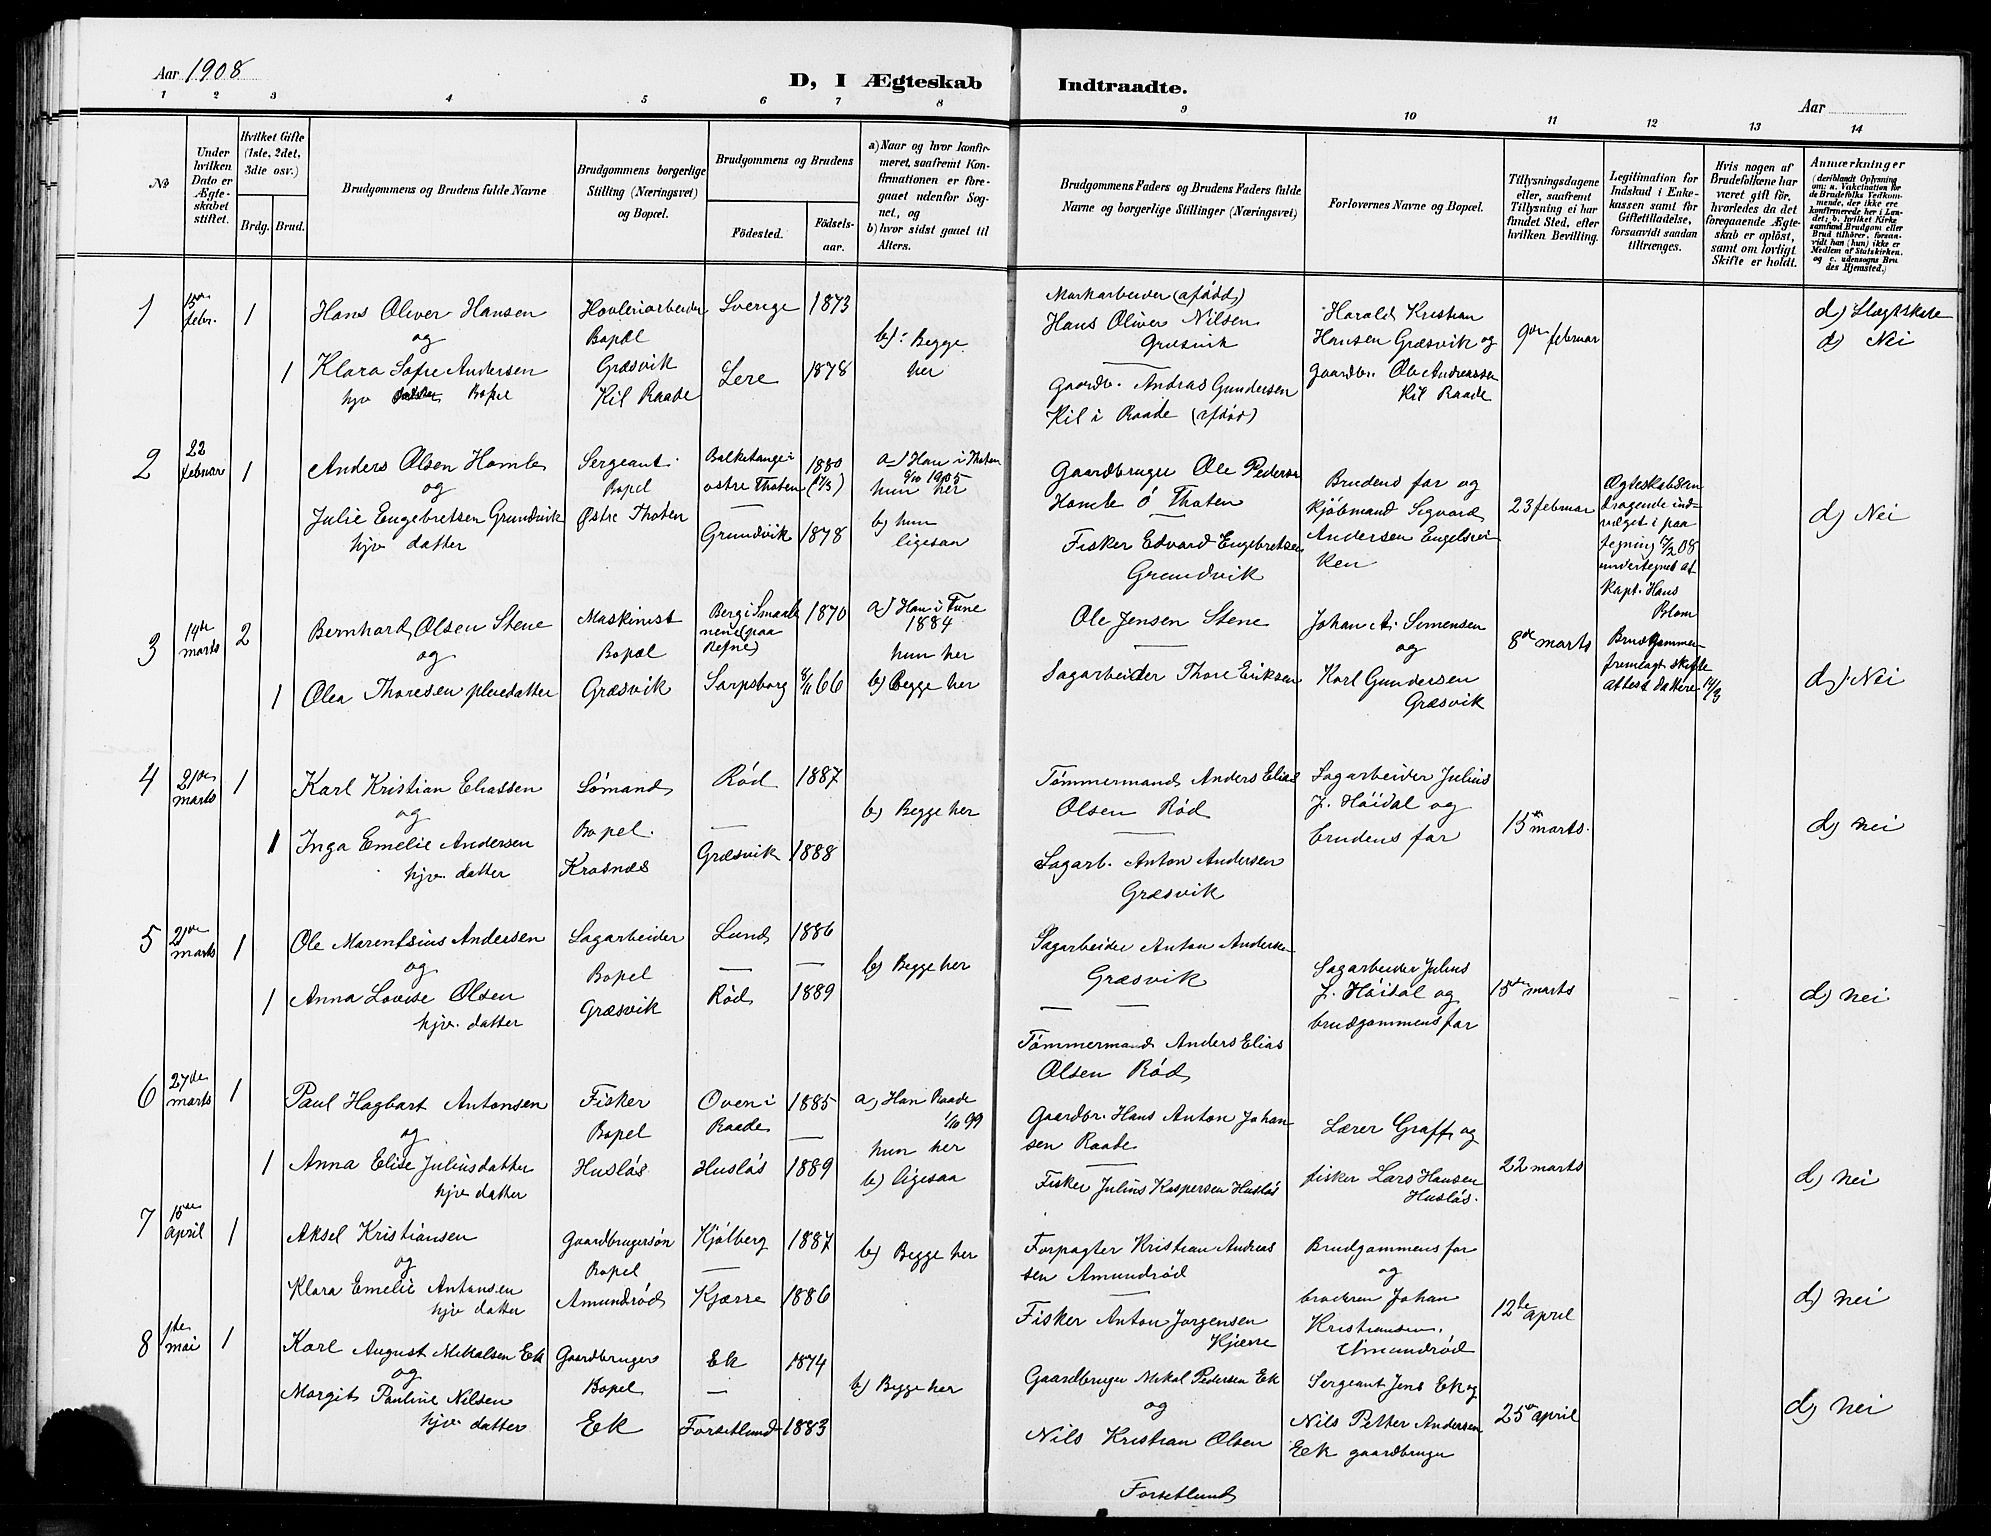 Aar 1908
D, I Ægteskab Indtraadte.
Aar
1 2 3 4 5 6 7 8 9 10 11 12 13 14
№
Under hvilken Dato er Ægteskabet stiftet.
Hvilket Gifte (1ste, 2det, 3die osv.)
Brdg. Brud.
Brudgommens og Brudens fulde Navne
Brudgommens borgerlige Stilling (Næringsvei) og Bopæl.
Brudgommens og Brudens
Fødested.
Fødselsaar.
a) Naar og hvor konfirmeret, saafremt Konfirmationen er foregaaet udenfor Sognet, og
b) hvor sidst gaaet til Alters.
Brudgommens Faders og Brudens Faders fulde Navne og borgerlige Stillinger (Næringsvei)
Forlovernes Navne og Bopæl.
Tillysningsdagene eller, saafremt Tillysning ei har fundet Sted, efter hvilken Bevilling.
Legitimation for Indskud i Enkekassen samt for Giftetilladelse, forsaavidt saadan tiltrænges.
Hvis nogen af Brudefolkene har været gift før, hvorledes da det foregaaende Ægteskab er opløst, samt om lovligt Skifte er holdt.
Anmærkninger
(deriblandt Oplysning om: a. Vakcination for de Brudefolks Vedkommende, der ikke ere konfirmerede her i Landet; b. hvilket Kirkesamfund Brudgom eller Brud tilhører, forsaavidt han (hun) ikke er Medlem af Statskirken, og c. udensogns Brudes Hjemsted.)
1
15de febr.
1
Hans Oliver Hansen
og
1
Klara Sofie Andersen
hjv Bopel
Høvleriarbeider
Bopæl
Græsvik
Kil Raade
Sverige 1873
Lere 1878
b): Begge
her
Markarbeider (afdød)
Hans Oliver Nilsen
Græsvik
Gaardbr. Andras Gundersen
Kil i Raade (afdød)
Harald Kristian
Hansen Græsvik og
gaardbr. Ole Andreassen
Kil Raade
9de februar
d) Slægtskab
d) Nei
2
22 februar
1
Anders Olsen Homle
og
Julie Engebretsen Grundvik
hjv datter
Sergeant
Bopel
Østre Thoten
Balkehange i
østre Thoten
Grundvik
1880
1878
a) Han i Thoten
1/10 1905
hun her
b) hun
ligesaa
Gaardbruger Ole Pedersen
Homle ø Thoten
Fisker Edvard Engebretsen
Grundvik
Brudens far og
kjøbmand Sigvard
Andersen Engelsvi-
ken
23 februar
Ægteskabsan
dragende ind-
vilget i paa
tegning 7/2 08
undertegnet af
Kapt. Hans
Blom
d) Nei
3
14de marts
2
Bernhard Olsen Stene
og
1
Olea Thoresen pleiedatter
Maskinist
Bopæl
Græsvik
Berg i Smaale
nene (paa
Refne)
1870
Sarpsborg 6/11 66
a) Han i Tune
1884
hun her
b) Begge her
Ole Jensen Stene
Sagarbeider Thore Eriksen
Johan A. Simensen
og
Karl Gundersen
Græsvik
8de marts
Brudgommen
fremlagt skifte
attest dateret 14/3
d) Nei
4
21de marts
1
Karl Kristian Eliassen
og
1
Inga Emelie Andersen
hjv. datter
Sømand
Bopel
Kraknæs
Rød 1887
Græsvik 1888
b) Begge her
Tømmermand Anders Elias
Olsen Rød
Sagarb. Anton Andersen
Græsvik
Sagarbeider Julius
J. Høidal og
brudens far
15de marts.
d) nei
5
21de marts
1
Ole Marentsius Andersen
og
1
Anna Lovise Olsen
hjv. datter
Sagarbeider
Bopel
Græsvik
Lund 1886
Rød 1889
b) Begge her
Sagarbeider Anton Andersen
Græsvik
Tømmermand Anders Elias
Olsen Rød
Sagarbeider Julius
J. Høidal og
brudgommens far
15de marts
d) nei
6
27de marts
1
Paul Hagbart Antonsen
og
1
Anna Elise Juliusdatter
hjv datter
Fisker
Bopel
Husløs
Oven i
Raade
1885
Husløs 1889
a) Han Raade
1/10 99
hun her
b) ligesaa
Gaardbr. Hans Anton Johan
sen Raade
Fisker Julius Kaspersen Husløs
Lærer Graff og
fisker Lars Hansen
Husløs.
22 marts
d) nei
7
15de april
1
Aksel Kristiansen
og
Klara Emelie Antonsen
hjv datter
Gaardbrugersøn
Bopel
Amundrød
Kjølberg 1887
Kjærre 1886
b) Begge her
Forpagter Kristian Andreas
sen Amundrød
Fisker Anton Jørgensen
Kjærre
Brudgommens far
og
broderen Johan
Kristiansen.
Amundrød
12te april
d) nei
8
1ste mai
1
Karl August Mikalsen Ek
og
Margit Pauline Nilsen
hjv datter
Gaardbruger
Bopel
Ek
Ek 1874
Forsetlund 1883
b) Begge her
Gaardbruger Mikal Pedersen Ek
og
Nils Kristian Olsen
Forsetlund
Sergeant Jens Ek og
Nils Petter Andersen
Ek gaardbruger
25de april
d) nei